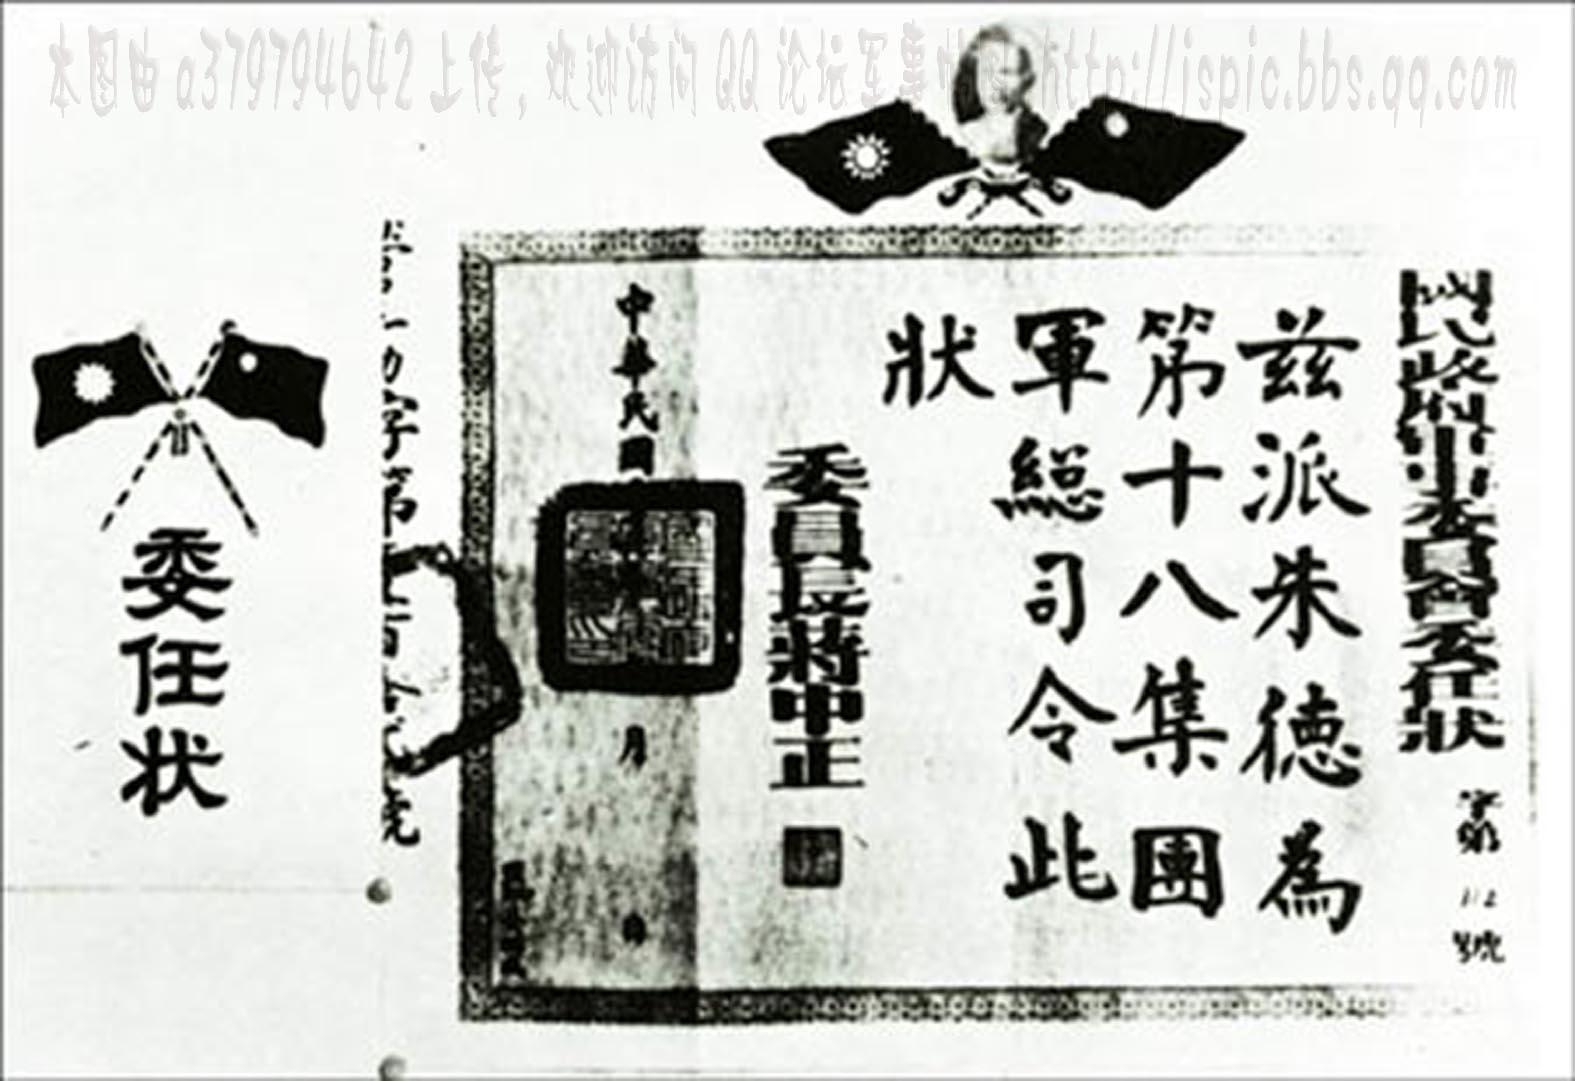 本图由 a379794642 上传，欢迎访问 QQ 论坛军事 http://jspic.bbs.qq.com
國民政府軍事委員會委任狀
字第 112 號
茲派朱德為
第十八集團
軍總司令此
狀
委員長蔣中正
中華民國
月
日
字第
百
號
委任状